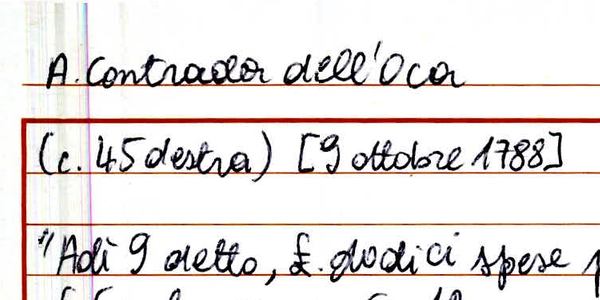 A. Contrada dell'Oca
(c. 45 destra) [9 ottobre 1788]
"Adì 9 detto, £. dodici spese